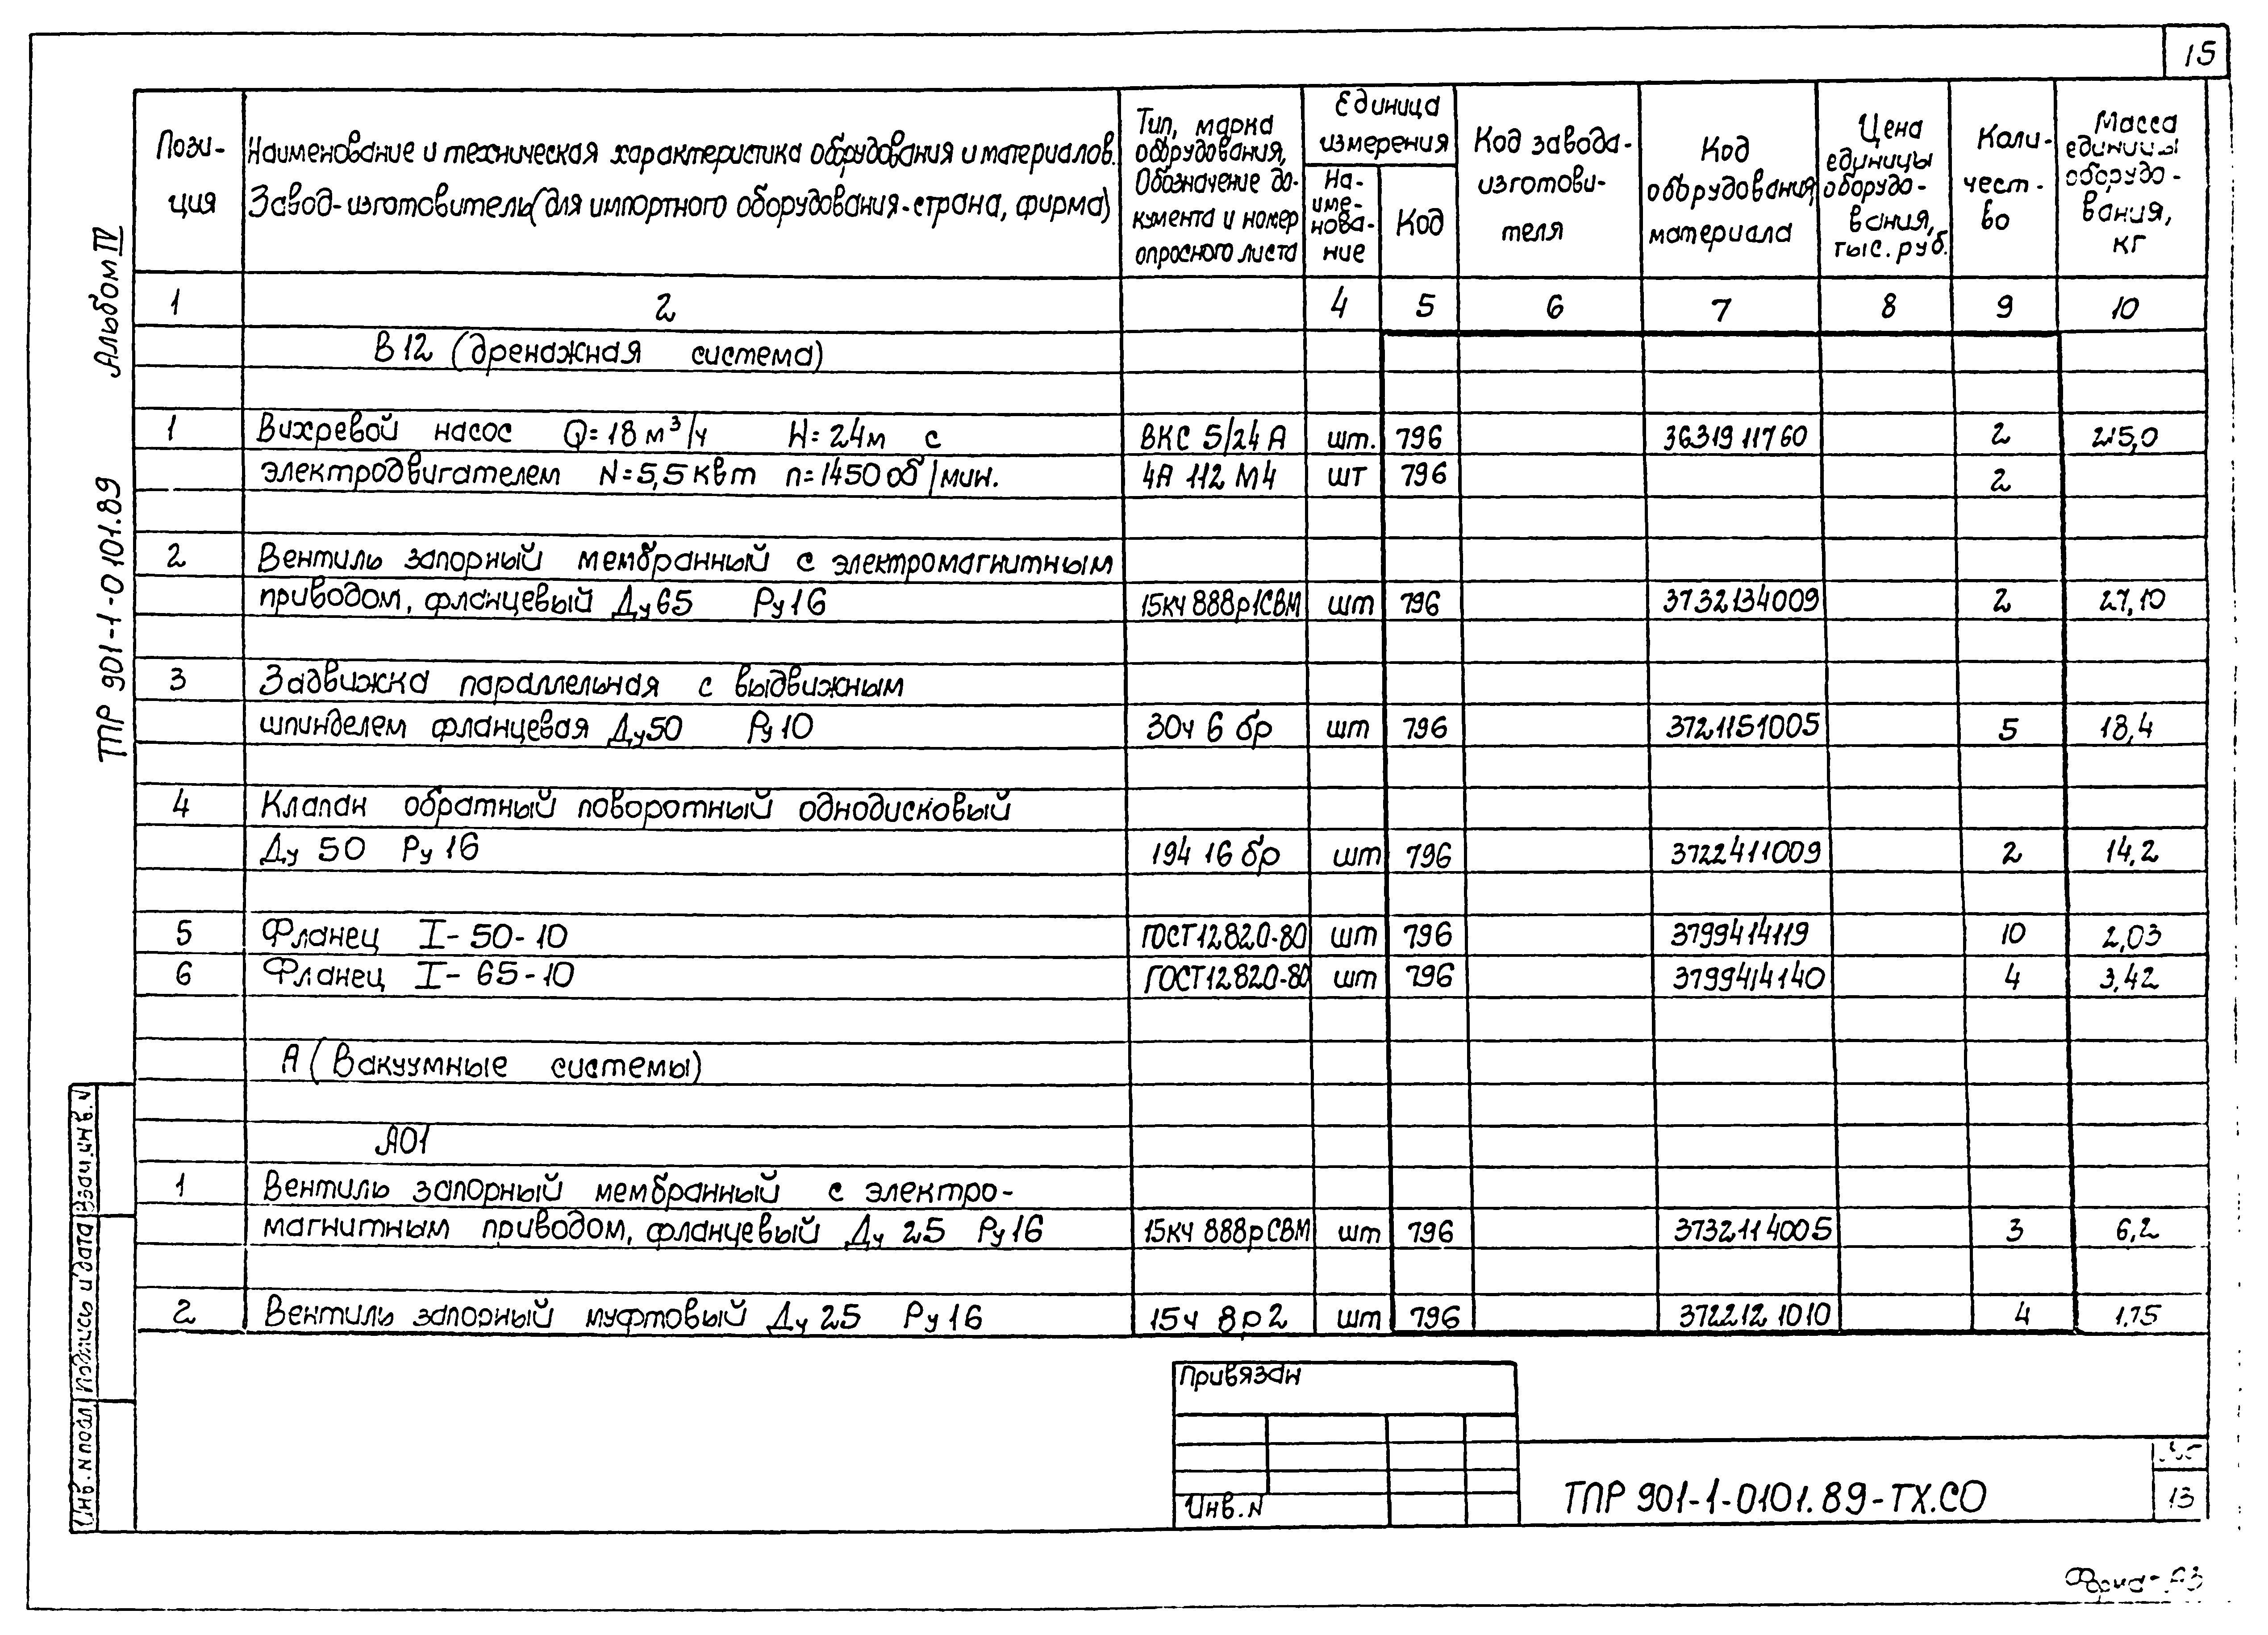 15
Пози-
ция
Наименование и техническая характеристика оборудования и материалов.
Завод-изготовитель (для импортного оборудования-страна, фирма)
Тип, марка
оборудования,
Обозначение до-
кумента и номер
опросного листа
Единица
измерения
На-
име-
нова-
ние
Код
Код завода-
изготови-
теля
Код
оборудования,
материала
Цена
единицы
оборудо-
вания,
тыс. руб.
Коли-
чест-
во
Масса
единицы
оборудо-
вания,
кг
1 2 4 5 6 7 8 9 10
В12 (дренажная система)
1 Вихревой насос Q=18 м³/ч Н=24м с ВКС 5/24 А шт. 796 3631911760 2 215,0
электродвигателем N=5,5 квт n=1450 об/мин. 4А 112 М4 шт 796 2
2 Вентиль запорный мембранный с электромагнитным
приводом, фланцевый Ду65 Ру16 15кч 888р1СВМ шт 796 3732134009 2 27,10
3 Задвижка параллельная с выдвижным
шпинделем фланцевая Ду50 Ру10 30ч 6 бр шт 796 3721151005 5 18,4
4 Клапан обратный поворотный однодисковый
Ду 50 Ру16 19ч 16 бр шт 796 3722411009 2 14,2
5 Фланец I-50-10 ГОСТ12820-80 шт 796 3799414119 10 2,03
6 Фланец I-65-10 ГОСТ12820-80 шт 796 3799414140 4 3,42
А (Вакуумные системы)
А01
1 Вентиль запорный мембранный с электро-
магнитным приводом, фланцевый Ду 25 Ру16 15кч 888рСВМ шт 796 3732114005 3 6,2
2 Вентиль запорный муфтовый Ду 25 Ру16 15ч 8р2 шт 796 3722121010 4 1.75
Альбом IV
ТПР 901-1-0101.89
Взам.инв.N
Подпись и дата
Инв.N подл
Привязан
Инв.N
ТПР 901-1-0101.89-ТХ.СО
13
А3